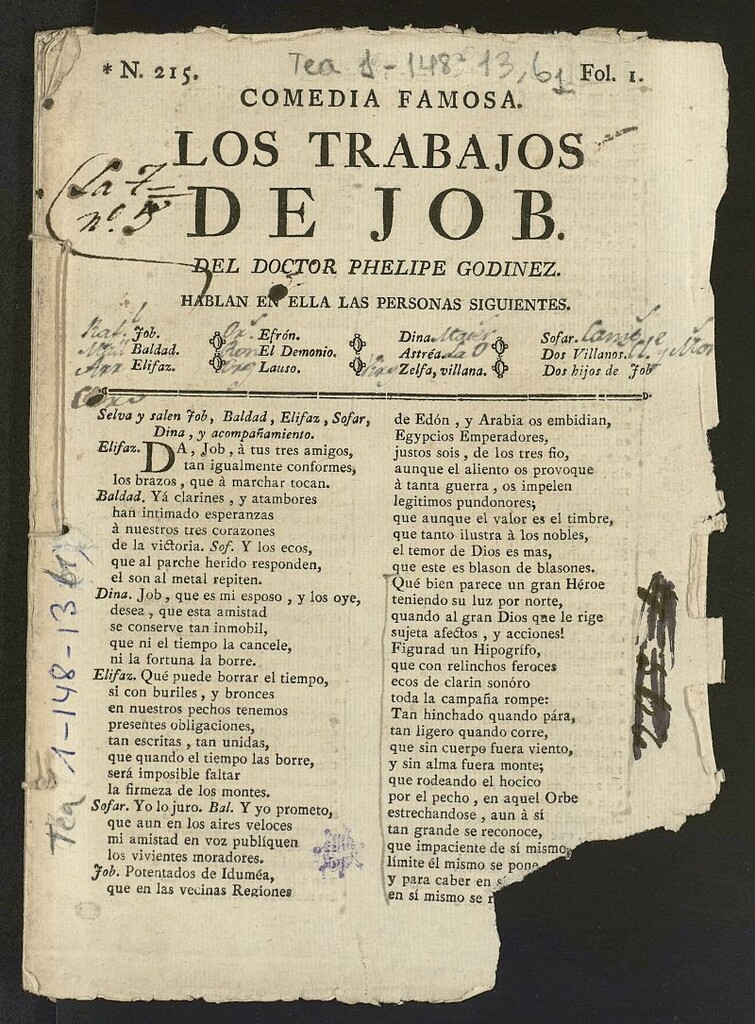 * N. 215.
Tea 1-148-13, b1
Fol. 1.
COMEDIA FAMOSA.
LOS TRABAJOS
DE JOB.
La 7
nº. 5
DEL DOCTOR PHELIPE GODINEZ.
HABLAN EN ELLA LAS PERSONAS SIGUIENTES.
Job.
Baldad.
Elifaz.
Efrón.
El Demonio.
Lauso.
Dina.
Astréa.
Zelfa, villana.
Sofar.
Dos Villanos.
Dos hijos de Job
Selva y salen Job, Baldad, Elifaz, Sofar,
Dina, y acompañamiento.
Elifaz. DA, Job, à tus tres amigos,
tan igualmente conformes,
los brazos, que à marchar tocan.
Baldad. Yá clarines, y atambores
han intimado esperanzas
à nuestros tres corazones
de la victoria. Sof. Y los ecos,
que al parche herido responden,
el son al metal repiten.
Dina. Job, que es mi esposo, y los oye,
desea, que esta amistad
se conserve tan inmobil,
que ni el tiempo la cancele,
ni la fortuna la borre.
Elifaz. Qué puede borrar el tiempo,
si con buriles, y bronces
en nuestros pechos tenemos
presentes obligaciones,
tan escritas, tan unidas,
que quando el tiempo las borre,
será imposible faltar
la firmeza de los montes.
Sofar. Yo lo juro. Bal. Y yo prometo,
que aun en los aires veloces
mi amistad en voz publíquen
los vivientes moradores.
Job. Potentados de Iduméa,
que en las vecinas Regiones
de Edón, y Arabia os embidian,
Egypcios Emperadores,
justos sois, de los tres fio,
aunque el aliento os provoque
à tanta guerra, os impelen
legitimos pundonores;
que aunque el valor es el timbre,
que tanto ilustra à los nobles,
el temor de Dios es mas,
que este es blason de blasones.
Qué bien parece un gran Héroe
teniendo su luz por norte,
quando al gran Dios que le rige
sujeta afectos, y acciones!
Figurad un Hipogrífo,
que con relinchos feroces
ecos de clarin sonóro
toda la campaña rompe:
Tan hinchado quando pára,
tan ligero quando corre,
que sin cuerpo fuera viento,
y sin alma fuera monte;
que rodeando el hocico
por el pecho, en aquel Orbe
estrechandose, aun à sí
tan grande se reconoce,
que impaciente de sí mismo,
límite él mismo se pone
y para caber en sí
en sí mismo se r
Tea 1-148-13 b1